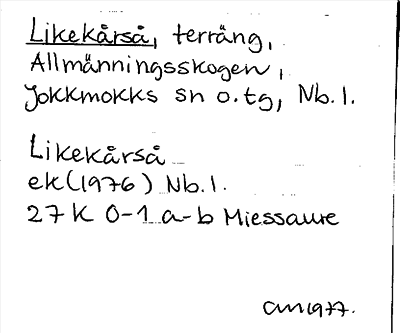 Likekårså, terräng,
Allmänningsskogen,
Jokkmokks sn o. tg, Nb. l.
Likekårså
ek (1976) Nb. l.
27 K 0-1 a-b Miessaure
am 1977.